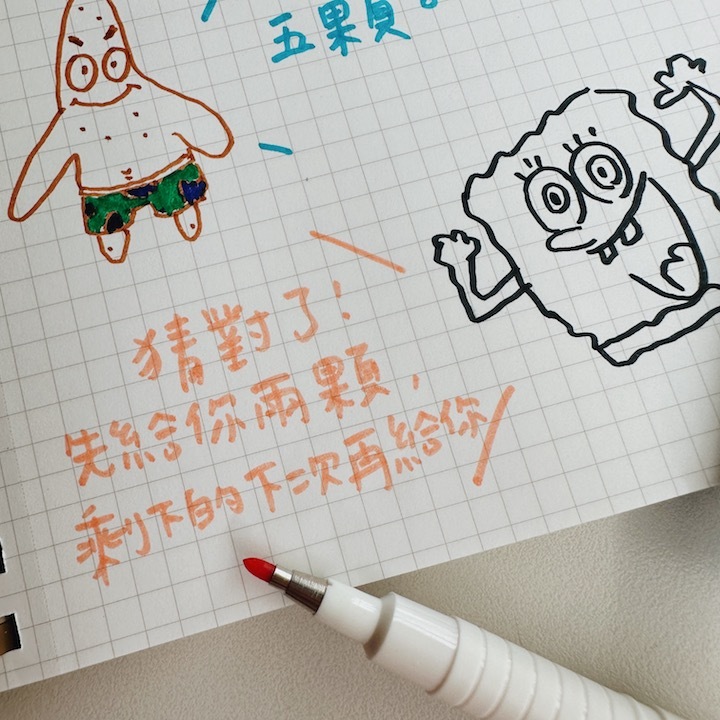 五果頁。
猜對了！
先給你兩顆，
剩下的下次再給你